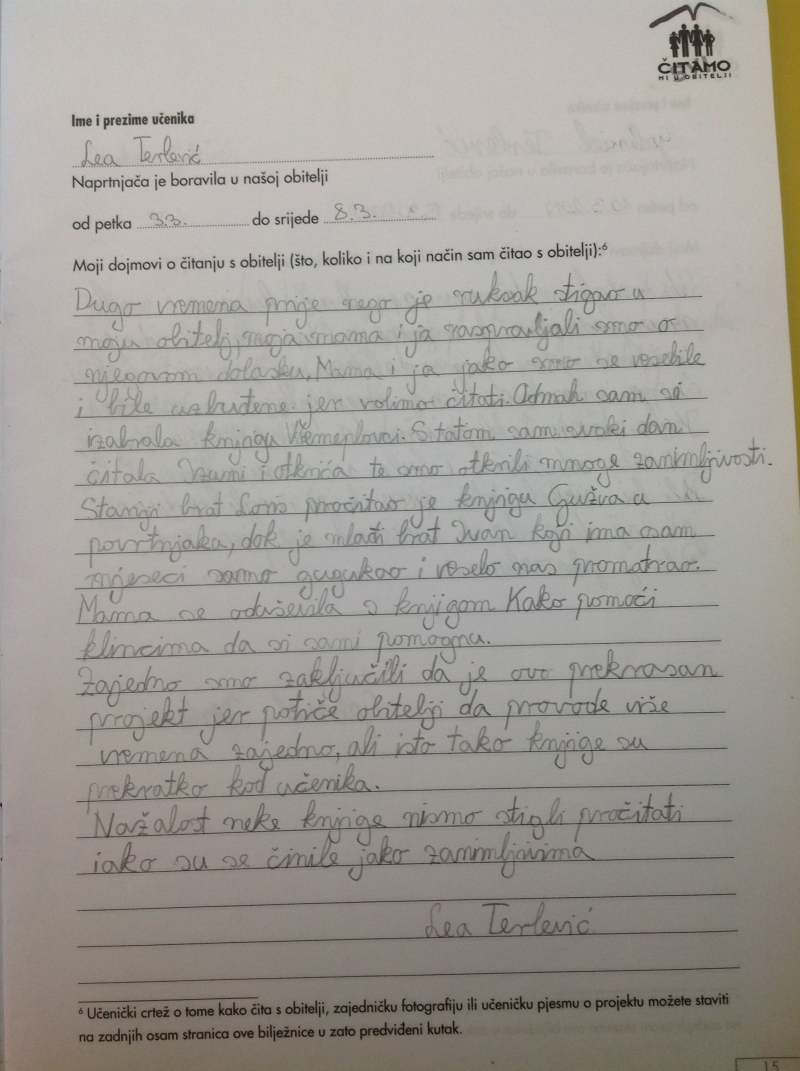 ČITAMO
MI U OBITELJI
Ime i prezime učenika
Lea Terlević
Naprtnjača je boravila u našoj obitelji
od petka 3.3. do srijede 8.3.
Moji dojmovi o čitanju s obitelji (što, koliko i na koji način sam čitao s obitelji):⁶
Dugo vremena prije nego je ruksak stigao u
moju obitelj, moja mama i ja raspravljali smo o
njegovom dolasku. Mama i ja jako smo se veselile
i bile uzbuđene jer volimo čitati. Odmah sam si
izabrala knjigu Vremeplovci. S tatom sam svaki dan
čitala Izumi i otkrića te smo otkrili mnoge zanimljivosti.
Stariji brat pročitao je knjigu Gužva u
povrtnjaku, dok je mlađi brat Ivan koji ima osam
mjeseci samo gugukao i veselo nas promatrao.
Mama se oduševila s knjigom Kako pomoći
klincima da si sami pomognu.
Zajedno smo zaključili da je ovo prekrasan
projekt jer potiče obitelji da provode više
vremena zajedno, ali isto tako knjige su
prekratko kod učenika.
Nažalost neke knjige nismo stigli pročitati
iako su se činile jako zanimljivima
Lea Terlević
⁶ Učenički crtež o tome kako čita s obitelji, zajedničku fotografiju ili učeničku pjesmu o projektu možete staviti
na zadnjih osam stranica ove bilježnice u zato predviđeni kutak.
15